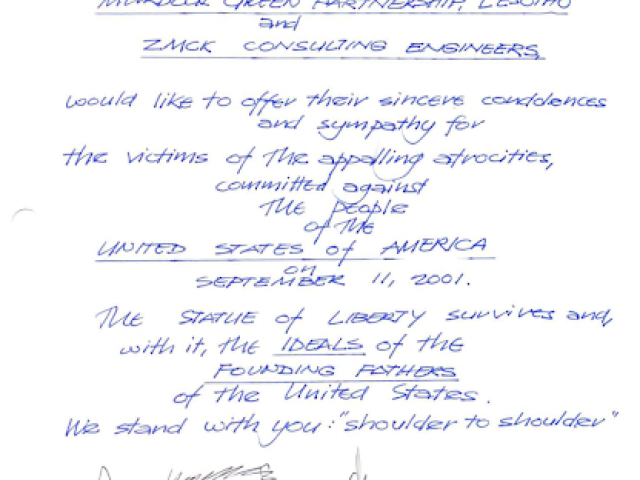 MURDOCK GREEN PARTNERSHIP, LESOTHO
and
ZMCK CONSULTING ENGINEERS,
would like to offer their sincere conddences
and sympathy for
the victims of The appalling atrocities,
committed against
THE People
of THE
UNITED STATES of AMERICA
on
SEPTEMBER 11, 2001.
THE STATUE of LIBERTY survives and,
with it, THE IDEALS of the
FOUNDING FATHERS
of the United States.
We stand with you: "shoulder to shoulder"